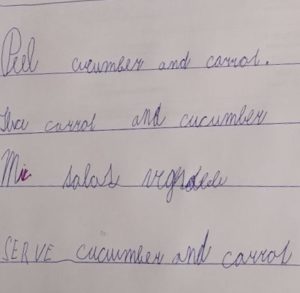 Peel cucumber and carrot.
carrot and cucumber
salat
SERVE cucumber and carrot